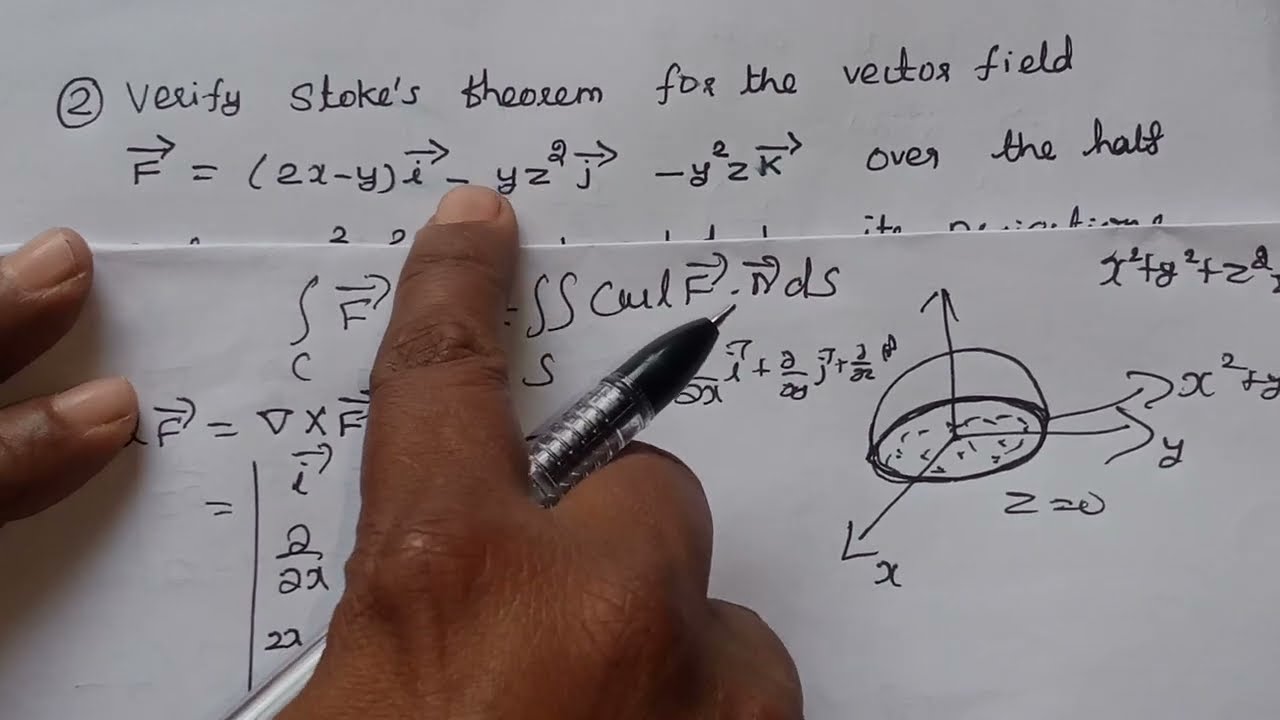 ② Verify Stoke's theorem for the vector field
F⃗ = (2x-y)i⃗ - yz²j⃗ -y²zk⃗ over the half
∫ F⃗ = ∬ Curl F⃗ . N⃗ ds
C S
x²+y²+z²
∂/∂x i⃗ + ∂/∂y j⃗ + ∂/∂z
F⃗ = ∇ X F⃗
= | i⃗
∂/∂x
2x
x²+y
y
z=0
x